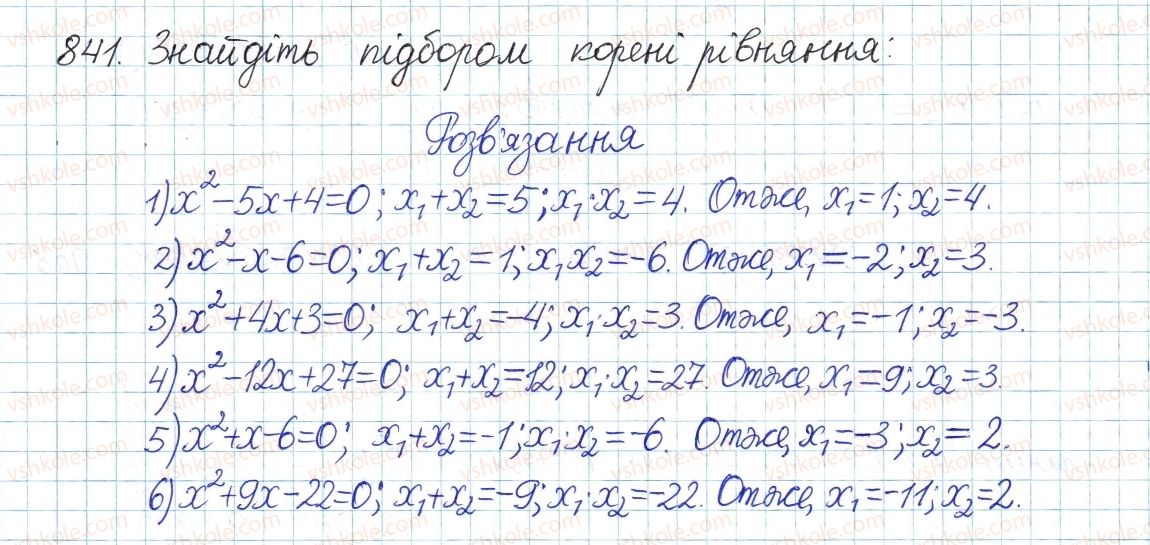 841. Знайдіть підбором корені рівняння:
Розв'язання
1) x²-5x+4=0; x₁+x₂=5; x₁·x₂=4. Отже, x₁=1; x₂=4.
2) x²-x-6=0; x₁+x₂=1; x₁x₂=-6. Отже, x₁=-2; x₂=3.
3) x²+4x+3=0; x₁+x₂=-4; x₁·x₂=3. Отже, x₁=-1; x₂=-3.
4) x²-12x+27=0; x₁+x₂=12; x₁·x₂=27. Отже, x₁=9; x₂=3.
5) x²+x-6=0; x₁+x₂=-1; x₁·x₂=-6. Отже, x₁=-3; x₂=2.
6) x²+9x-22=0; x₁+x₂=-9; x₁·x₂=-22. Отже, x₁=-11; x₂=2.
vshkole.com